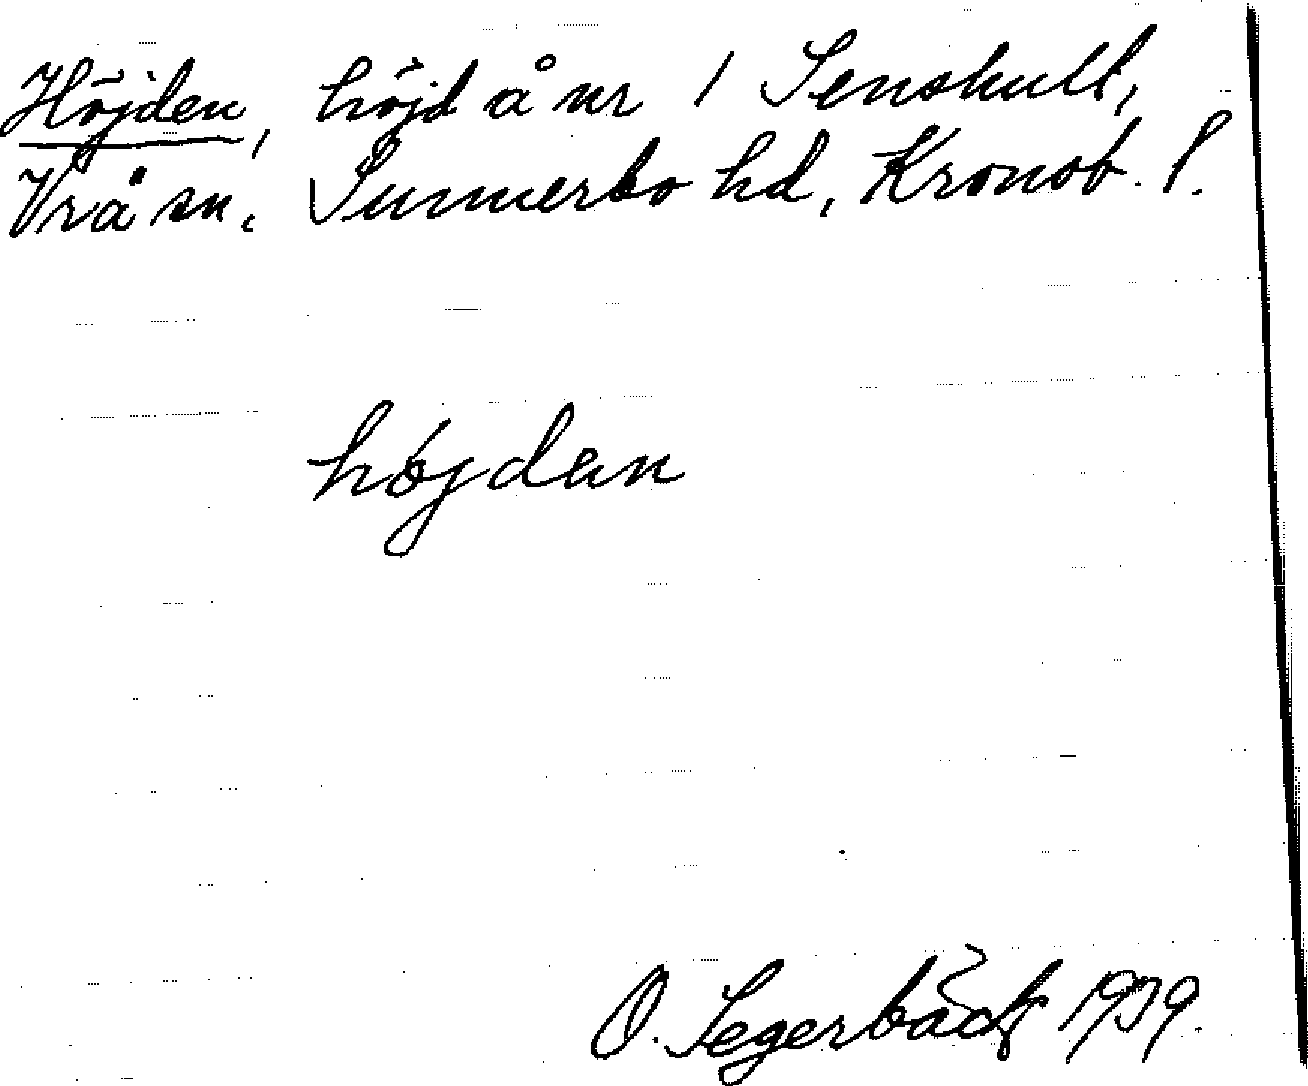 Höjden, höjd å nr 1 Senskull,
Vrå sn, Sunnerbo hd, Kronob. l.
högdan
O. Segerbäck 1939.